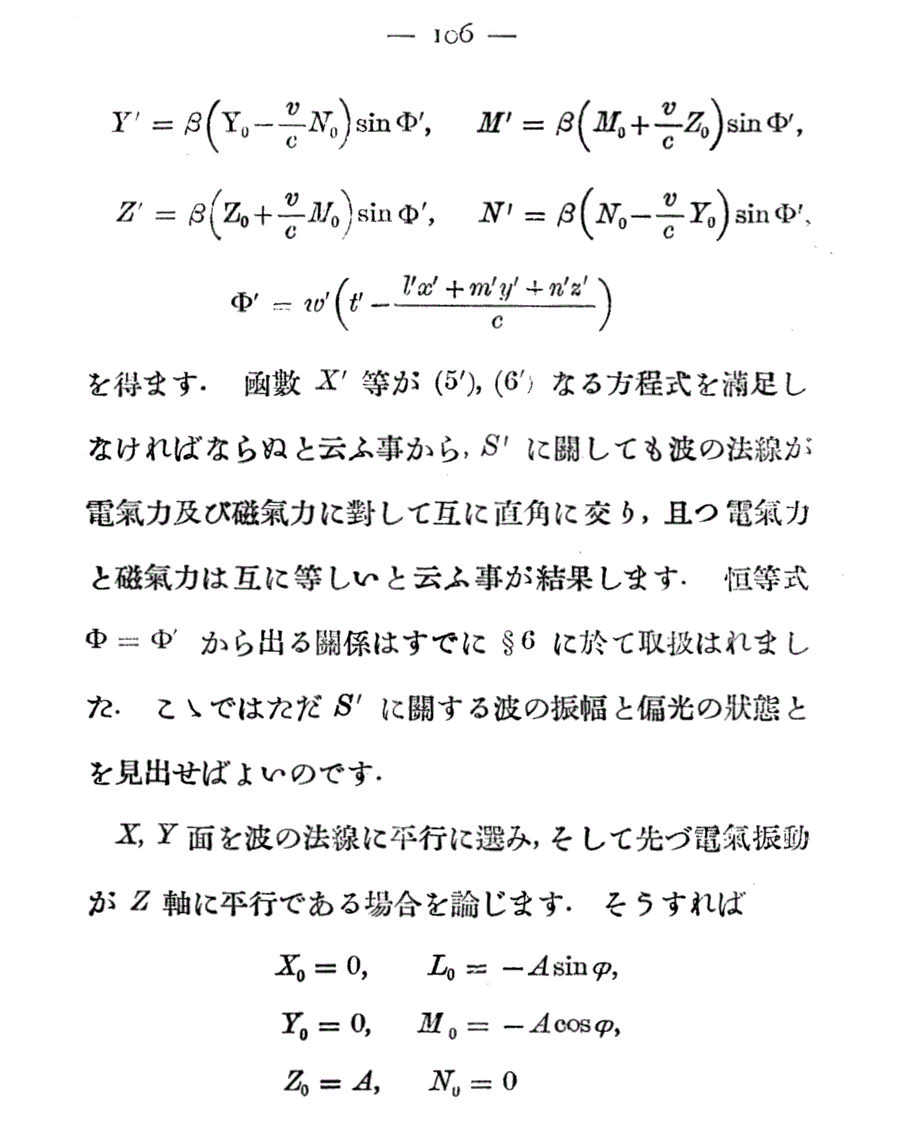 — 106 —
Y′ = β(Y₀ − v/c N₀) sin Φ′,  M′ = β(M₀ + v/c Z₀) sin Φ′,
Z′ = β(Z₀ + v/c M₀) sin Φ′,  N′ = β(N₀ − v/c Y₀) sin Φ′,
Φ′ = w′(t′ − (l′x′ + m′y′ + n′z′)/c)
を得ます. 函數 X′ 等が (5′), (6′) なる方程式を滿足し
なければならぬと云ふ事から, S′ に關しても波の法線が
電氣力及び磁氣力に對して互に直角に交り, 且つ電氣力
と磁氣力は互に等しいと云ふ事が結果します. 恒等式
Φ = Φ′ から出る關係はすでに §6 に於て取扱はれまし
た. こゝではただ S′ に關する波の振幅と偏光の狀態と
を見出せばよいのです.
X, Y 面を波の法線に平行に選み, そして先づ電氣振動
が Z 軸に平行である場合を論じます. そうすれば
X₀ = 0,  L₀ = −A sin φ,
Y₀ = 0,  M₀ = −A cos φ,
Z₀ = A,  N₀ = 0